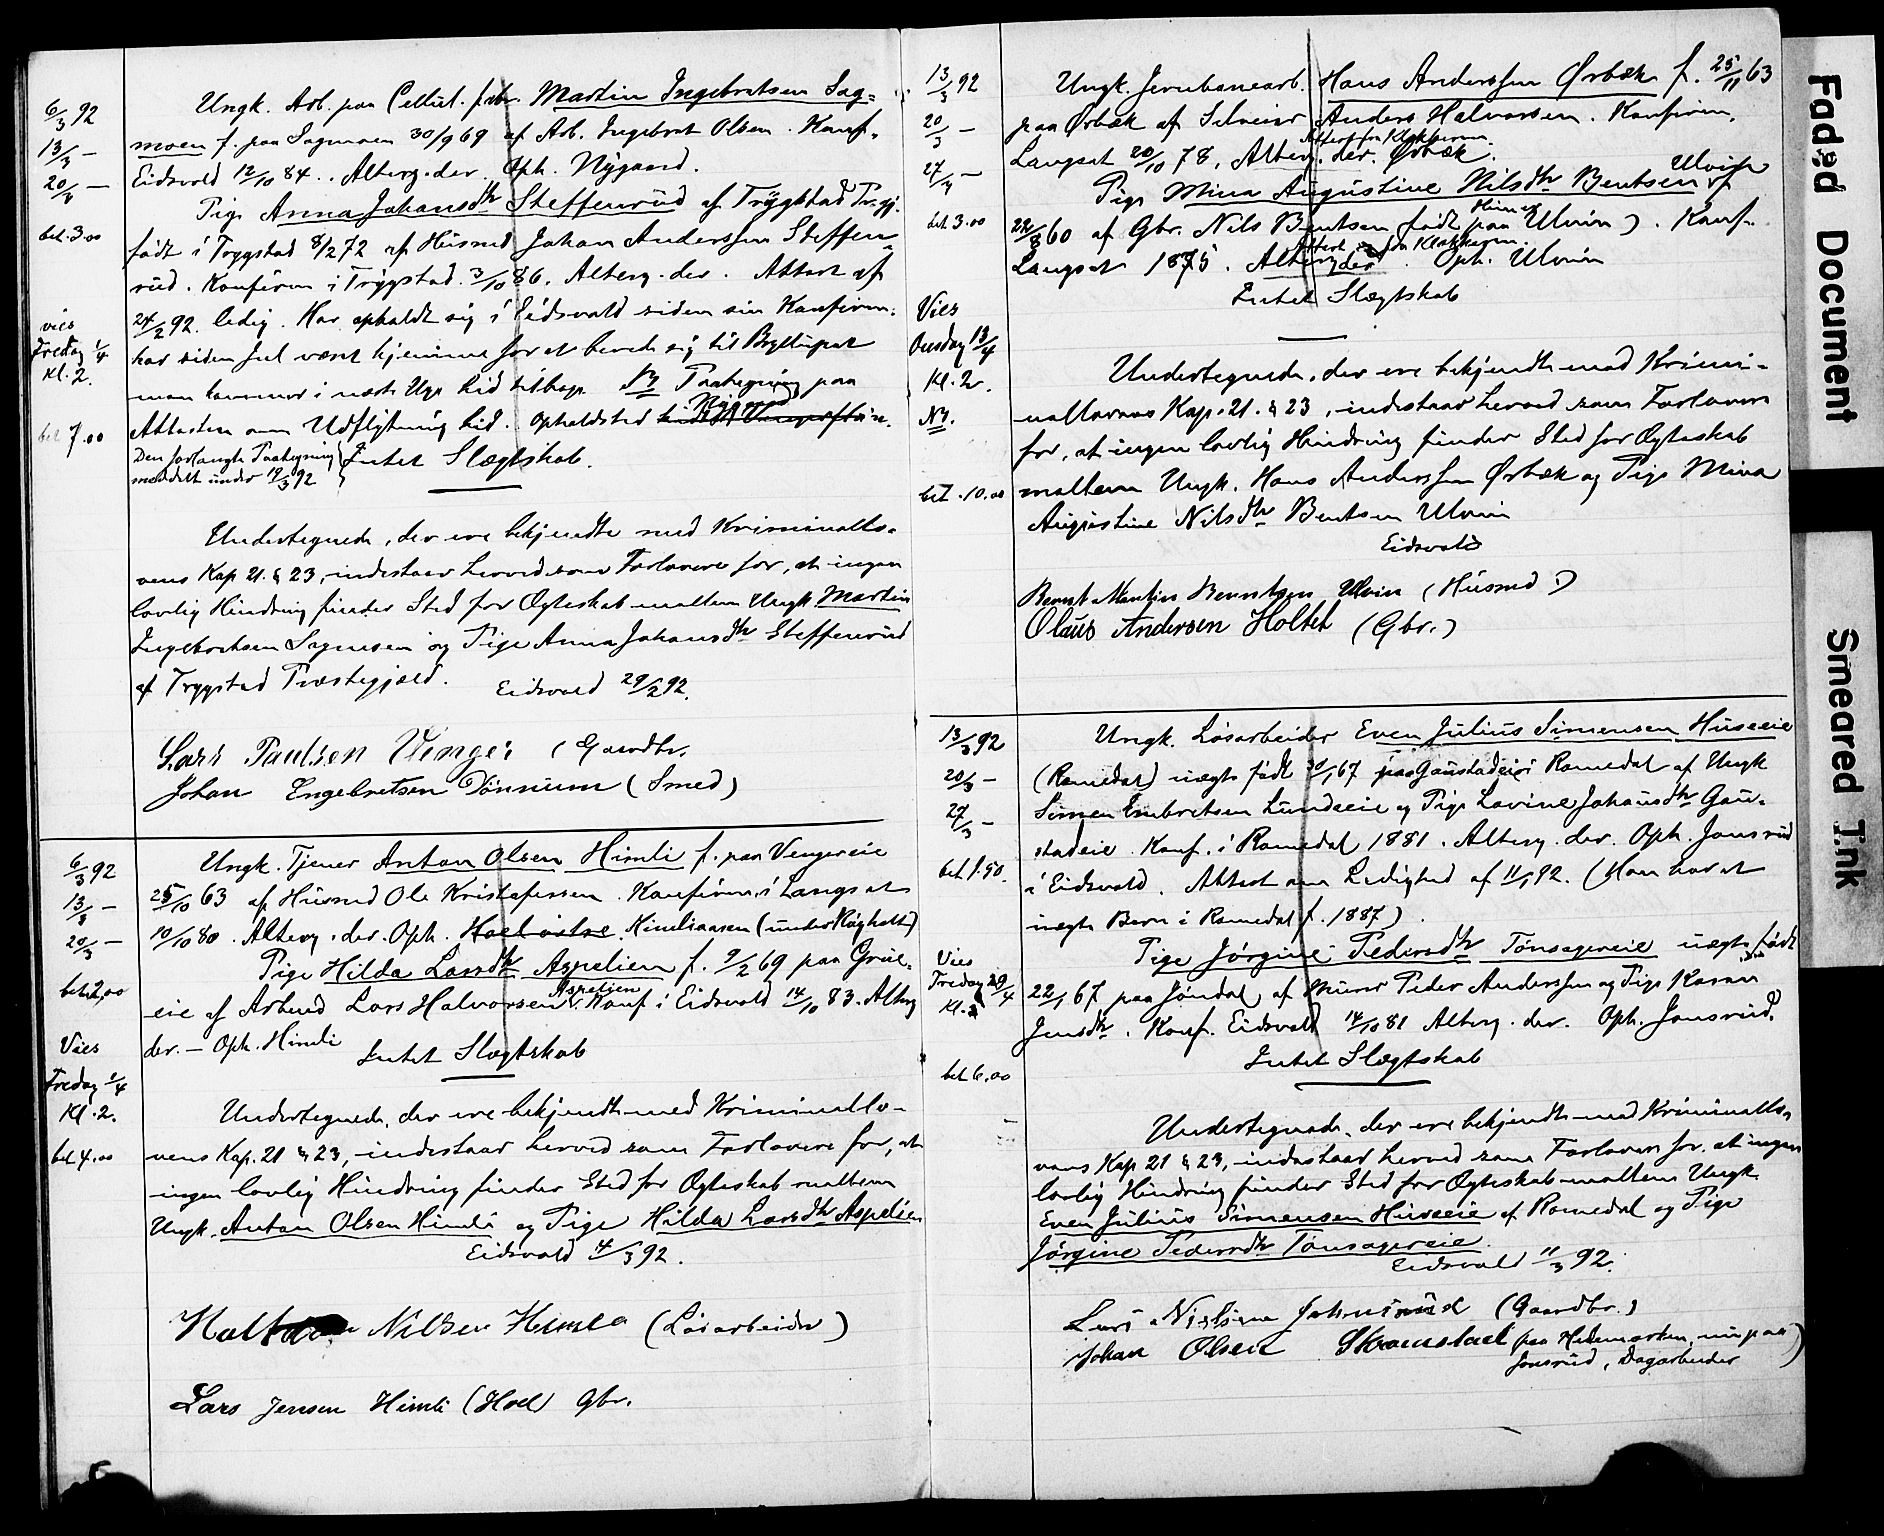 6/3 92
13/3 —
20/3 —
bet. 3.00
vies
Fredag 1/4
Kl. 2.
bet 7.00
Ungk. Arb. paa Cellul. fabr. Martin Ingebretsen Sag=
moen f. paa Sagmoen 30/9 69 af Arb. Ingebret Olsen. Konf.
Eidsvold 12/10 84. Alterg. der. Oph. Nygaard.
Pige Anna Johansdtr Steffenrud af Trygstad Prgj.
født i Trygstad 8/2 72 af Husmd Johan Anderssen Steffen-
rud. Konfirm i Trygstad 3/10 86. Alterg. der. Attest af
24/2 92. ledig. Har opholdt sig i Eidsvold siden sin Konfirm.
har siden Jul været hjemme for at berede sig til Bryllupet
men kommer i næste Uge hid tilbage NB Paategning paa
Attesten om Udflytning hid. Opholdsted Nygaard
Den forlangte Paategning
meddelt under 19/3 92
Intet Slægtskab.
Undertegnede, der ere bekjendte med Kriminallo-
vens Kap 21. § 23, indestaar herved som Forlovere for, at ingen
lovlig Hindring finder Sted for Ægteskab mellem Ungk Martin
Ingebretsen Sagmoen og Pige Anna Johansdtr Steffenrud
af Trygstad Præstegjæld.
Eidsvold 29/2 92.
Lars Paulsen Venger (Gaardbr.
Johan Engebretsen Dønnum (Smed)
6/3 92
13/3 —
20/3 —
bet 2,00
Vies
Fredag 1/4
Kl. 2.
bet 4.00
Ungk. Tjener Anton Olsen Himli f. paa Vengereie
25/10 63 af Husmd Ole Kristofersen. Konfirm. i Langset
10/10 80. Alterg. der. Oph. Hoel østre. Himliaasen (under Røgholt)
Pige Hilda Larsdtr Aspelien f. 9/2 69 paa Grue-
eie af Arbmd Lars Halvorsen Aspelien. Konf i Eidsvold 14/10 83. Alterg
der. — Oph. Himli
Intet Slægtskab
Undertegnede, der ere bekjendte med Kriminallo-
vens Kap. 21 § 23, indestaar herved som Forlovere for, at
ingen lovlig Hindring finder Sted for Ægteskab mellem
Ungk. Anton Olsen Himli og Pige Hilda Larsdtr Aspelien
Eidsvold 4/3 92.
Nilsen Himle (Løsarbeider)
Lars Jensen Himli (Hoel) Gbr.
13/3 92
20/3 —
27/3 —
bet 3.00
Vies
Onsdag 13/4
Kl. 2.
NB.
bet. 10.00
Ungk. Jernbanearb. Hans Anderssen Ørbæk f. 25/11 63
paa Ørbæk af Selveier Anders Halvorsen. Konfirm.
Attest fra Klokkeren.
Langset 20/10 78. Alterg. der. Ørbæk.
Pige Mina Augustine Nilsdtr Bentsen Ulvin f
22/8 60 af Gbr. Nils Bentsen (født paa Ulvin). Konf.
Attest fra Klokkeren.
Langset 1875. Alterg der. Oph. Ulvin
Intet Slægtskab
Undertegnede, der ere bekjendte med Krimi-
nallovens Kap. 21. § 23, indestaar herved som Forlovere
for, at ingen lovlig Hindring finder Sted for Ægteskab
mellem Ungk. Hans Anderssen Ørbæk og Pige Mina
Augustine Nilsdtr Bentsen Ulvin
Eidsvold
Bernt Martin Berntsen Ulvin (Husmd)
Olaus Andersen Holtet (Gbr.)
13/3 92
20/3 —
27/3 —
bet 1.50.
Vies
Fredag 29/4
Kl. 2
bet 6.00
Ungk. Løsarbeider Even Julius Simensen Huseeie
(Romedal) uægte født 30/1 67 paa Gaustadeie i Romedal af Ungk
Simen Embretsen Lundseie og Pige Lovine Johansdtr Gau-
stadeie. Konf. i Romedal 1881. Alterg. der. Oph. Jønsrud
i Eidsvold. Attest om Ledighed af 11/1 92. (Han har et
uægte Barn i Romedal f. 1887).
Pige Jørgine Pedersdtr Tønsagereie uægte født
22/1 67 paa Jøndal af Murer Peder Anderssen og Pige Karen
Jensdtr. Konf. Eidsvold 14/10 81 Alterg. der. Oph. Jønsrud.
Intet Slægtskab
Undertegnede, der ere bekjendte med Kriminallo-
vens Kap 21 § 23, indestaar herved som Forlovere for, at ingen
lovlig Hindring finder Sted for Ægteskab mellem Ungk.
Even Julius Simensen Huseeie af Romedal og Pige
Jørgine Pedersdtr Tønsagereie.
Eidsvold 11/3 92.
Lars Nielsen Johnsrud (Gaardbr.)
Johan Olsen Skramstad paa Hedemarken, nu paa
Jønsrud, Dagarbeider)
Faded Document
Smeared Ink